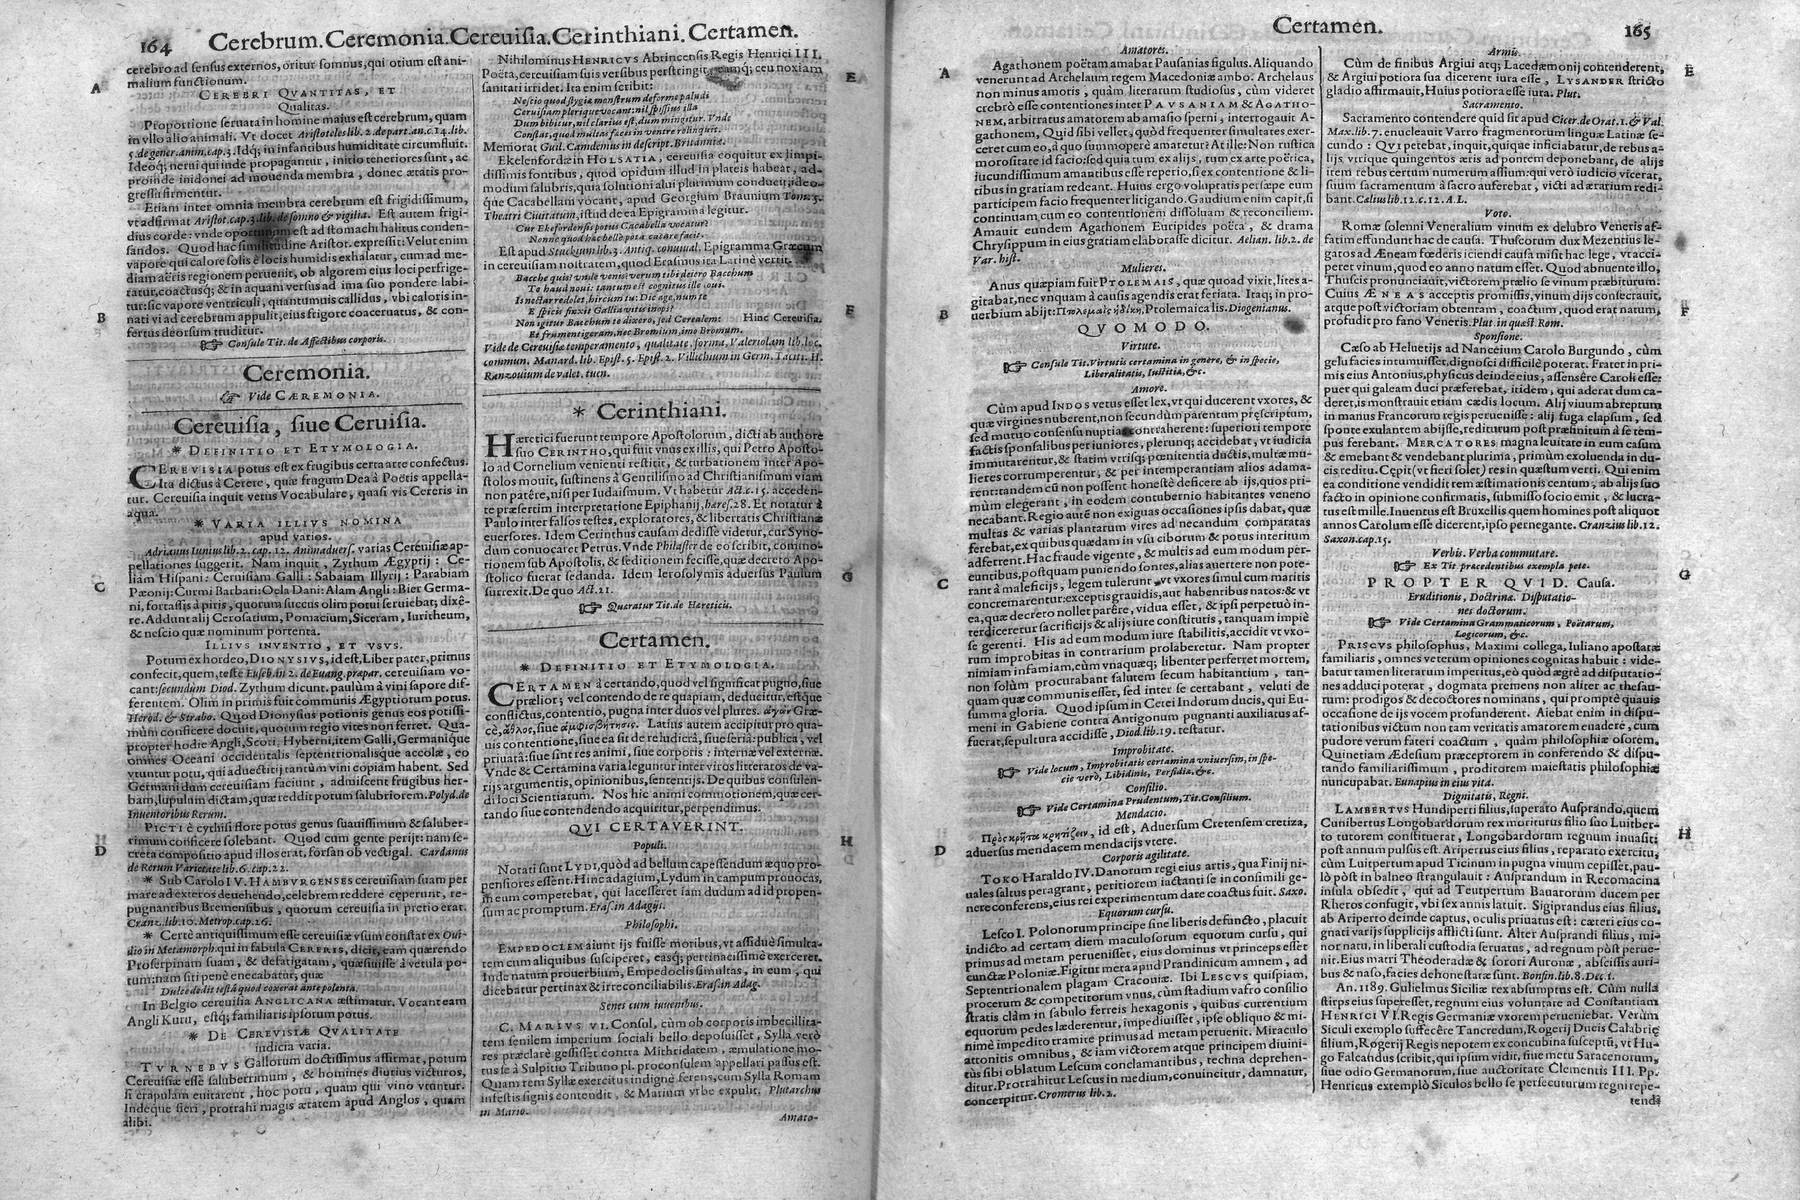 164 Cerebrum. Ceremonia. Cereuiſia. Cerinthiani. Certamen.
cerebro ad ſenſus externos, oritur ſomnus, qui otium eſt ani-
malium functionum.
A
CEREBRI QVANTITAS, ET
Qualitas.
Proportione ſeruata in homine maius eſt cerebrum, quam
in vllo alio animali. Vt docet Ariſtoteles lib. 2. de part. an. c. 14. lib.
5. de gener. anim. cap. 3. Idq; in infantibus humiditate circumfluit.
Ideoq; nerui qui inde propagantur, initio teneriores ſunt, ac
proinde inidonei ad mouenda membra, donec ætatis pro-
greſſu firmentur.
Etiam inter omnia membra cerebrum eſt frigidiſſimum,
vt adfirmat Ariſtot. cap. 3. lib. de ſomno & vigilia. Eſt autem frigi-
dius corde: vnde oportunum eſt ad ſtomachi halitus conden-
ſandos. Quod hac ſimilitudine Ariſtot. expreſſit: Velut enim
vapore qui calore ſolis è locis humidis exhalatur, cum ad me-
diam aëris regionem peruenit, ob algorem eius loci perfrige-
ratur, coactusq; & in aquam verſus ad ima ſuo pondere labi-
tur: ſic vapore ventriculi, quantumuis callidus, vbi caloris in-
B
nati vi ad cerebrum appulit, eius frigore coaceruatus, & con-
fertus deorſum truditur.
☞ Conſule Tit. de Affectibus corporis.
Ceremonia.
☞ Vide CÆREMONIA.
Cereuiſia, ſiue Ceruiſia.
* DEFINITIO ET ETYMOLOGIA.
CEREVISIA potus eſt ex frugibus certa arte confectus.
Ita dictus à Cerere, quæ frugum Dea à Poëtis appella-
tur. Cereuiſia inquit vetus Vocabulare, quaſi vis Cereris in
aqua.
* VARIA ILLIVS NOMINA
apud varios.
Adrianus Iunius lib. 2. cap. 12. Animaduerſ. varias Cereuiſiæ ap-
pellationes ſuggerit. Nam inquit, Zythum Ægyptij: Ce-
C
liam Hiſpani: Ceruiſiam Galli: Sabaiam Illyrij: Parabiam
Pæonij: Curmi Barbari: Oela Dani: Alam Angli: Bier Germa-
ni, fortaſſis à piris, quorum ſuccus olim potui ſeruiebat; dixê-
re. Addunt alij Ceroſatium, Pomacium, Siceram, Iuritheum,
& neſcio quæ nominum portenta.
ILLIVS INVENTIO, ET VSVS.
Potum ex hordeo, DIONYSIVS, id eſt, Liber pater, primus
confecit, quem, teſte Euſeb. in 2. de Euang. præpar. cereuiſiam vo-
cant: ſecundùm Diod. Zythum dicunt. paulùm à vini ſapore dif-
ferentem. Olim in primis fuit communis Ægyptiorum potus.
Herod. & Strabo. Quod Dionyſius potionis genus eos potiſſi-
mùm conficere docuit, quorum regio vites non ferret. Qua-
propter hodie Angli, Scoti, Hyberni, item Galli, Germanique
omnes Oceani occidentalis ſeptentrionalisque accolæ, eo
vtuntur potu, qui aduectitij tantùm vini copiam habent. Sed
Germani dum cereuiſiam faciunt, admiſcent frugibus her-
bam, lupulum dictam, quæ reddit potum ſalubriorem. Polyd. de
Inuentoribus Rerum.
PICTI è cythiſi flore potus genus ſuauiſſimum & ſaluber-
rimum conficere ſolebant. Quod cum gente perijt: nam ſe-
D
creta compoſitio apud illos erat, forſan ob vectigal. Cardanus
de Rerum Varietate lib. 6. cap. 22.
* Sub Carolo IV. HAMBVRGENSES cereuiſiam ſuam per
mare ad exteros deuehendo, celebrem reddere cœperunt, re-
pugnantibus Bremenſibus, quorum cereuiſia in pretio erat.
Cranz. lib. 10. Metrop. cap. 16.
* Certè antiquiſſimum eſſe cereuiſiæ vſum conſtat ex Oui-
dio in Metamorph. qui in fabula CERERIS, dicit, eam quærendo
Proſerpinam ſuam, & defatigatam, quæſiuiſſe à vetula po-
tum: nam ſiti penè enecabatur; quæ
Dulce dedit teſtâ quod coxerat ante polenta.
In Belgio cereuiſia ANGLICANA æſtimatur. Vocant eam
Angli Kutu, eſtq; familiaris ipſorum potus.
* DE CEREVISIÆ QVALITATE
iudicia varia.
TVRNEBVS Gallorum doctiſſimus affirmat, potum
Cereuiſiæ eſſe ſaluberrimum, & homines diutius victuros,
ſi crapulam euitarent, hoc potu, quam qui vino vtuntur.
Indeque fieri, protrahi magis ætatem apud Anglos, quam
alibi.
Nihilominus HENRICVS Abrincenſis Regis Henrici III.
Poëta, cereuiſiam ſuis verſibus perſtringit, eamq; ceu noxiam
E
ſanitati irridet. Ita enim ſcribit:
Neſcio quod ſtygiæ monſtrum deforme paludi
Ceruiſiam plerique vocant: nil ſpiſſius illa
Dum bibitur, nil clarius eſt, dum mingitur. Vnde
Conſtat, quod multas faces in ventre relinquit.
Memorat Guil. Camdenius in deſcript. Britanniæ.
Ekelenfordæ in HOLSATIA, cereuiſia coquitur ex limpi-
diſſimis fontibus, quod opidum illud in plateis habeat, ad-
modum ſalubris, quia ſolutioni alui plurimum conducit; ideo-
que Cacabellam vocant, apud Georgium Braunium Tom. 5.
Theatri Ciuitatum, iſtud de ea Epigramma legitur.
Cur Ekefordenſis potus Cacabella vocatur?
Nonne quod hac belle pota cacare facit.
Eſt apud Stuckium lib. 3. Antiq. conuiual. Epigramma Græcum
in cereuiſiam noſtratem, quod Eraſmus ita Latinè vertit.
Bacche quis? vnde venis? verum tibi deiero Bacchum
Te haud noui: tantum eſt cognitus ille Ioui.
Is nectar redolet, hircum tu: Dic age, num te
E ſpicis finxit Gallia vitis inops?
F
Non igitur Bacchum te dixero, ſed Cerealem: Hinc Cereuiſia.
Et frumentigeram, nec Bromium, imo Bromum.
Vide de Cereuiſiæ temperamento, qualitate, forma, Valeriolam lib. loc.
commun. Manard. lib. Epiſt. 5. Epiſt. 2. Villichium in Germ. Taciti. H.
Ranzouium de valet. tuen.
* Cerinthiani.
Hæretici fuerunt tempore Apoſtolorum, dicti ab authore
ſuo CERINTHO, qui fuit vnus ex illis, qui Petro Apoſto-
lo ad Cornelium venienti reſtitit, & turbationem inter Apo-
ſtolos mouit, ſuſtinens à Gentiliſmo ad Chriſtianiſmum viam
non patêre, niſi per Iudaiſmum. Vt habetur Act. c. 15. acceden-
te præſertim interpretatione Epiphanij, hæreſ. 28. Et notatur à
Paulo inter falſos teſtes, exploratores, & libertatis Chriſtianæ
euerſores. Idem Cerinthus cauſam dediſſe videtur, cur Syno-
dum conuocaret Petrus. Vnde Philaſter de eo ſcribit, commo-
tionem ſub Apoſtolis, & ſeditionem feciſſe, quæ decreto Apo-
ſtolico fuerat ſedanda. Idem Ieroſolymis aduerſus Paulum
G
ſurrexit. De quo Act. 21.
☞ Quæratur Tit. de Hæreticis.
Certamen.
* DEFINITIO ET ETYMOLOGIA.
CERTAMEN à certando, quod vel ſignificat pugno, ſiue
prælior; vel contendo de re quapiam, deducitur, eſtque
conflictus, contentio, pugna inter duos vel plures. ἀγὼν Græ-
cè, ἆθλος, ſiue ἀμφισβήτησις. Latius autem accipitur pro qua-
uis contentione, ſiue ea ſit de re ludicrâ, ſiue ſeriâ: publica, vel
priuatâ: ſiue ſint res animi, ſiue corporis: internæ vel externæ.
Vnde & Certamina varia leguntur inter viros litteratos de va-
rijs argumentis, opinionibus, ſententijs. De quibus conſulen-
di loci Scientiarum. Nos hic animi commotionem, quæ cer-
tando ſiue contendendo acquiritur, perpendimus.
QVI CERTAVERINT.
Populi.
H
Notati ſunt LYDI, quòd ad bellum capeſſendum æquo pro-
penſiores eſſent. Hinc adagium, Lydum in campum prouocas,
in eum competebat, qui laceſſeret iam dudum ad id propen-
ſum ac promptum. Eraſ. in Adagijs.
Philoſophi.
EMPEDOCLEM aiunt ijs fuiſſe moribus, vt aſſiduè ſimulta-
tem cum aliquibus ſuſciperet, easq; pertinaciſſimè exerceret.
Inde natum prouerbium, Empedoclis ſimultas, in eum, qui
dicebatur pertinax & irreconciliabilis. Eraſ. in Adag.
Senes cum iuuenibus.
C. MARIVS VI. Conſul, cùm ob corporis imbecillita-
tem ſenilem imperium ſociali bello depoſuiſſet, Sylla verò
res præclarè geſſiſſet contra Mithridatem, æmulatione mo-
tus ſe à Sulpitio Tribuno pl. proconſulem appellari paſſus eſt.
Quam rem Syllæ exercitus indignè ferens, cum Sylla Romam
infeſtis ſignis contendit, & Marium vrbe expulit. Plutarchus
in Mario.
Amato-
Certamen. 165
Amatores.
A
Agathonem poëtam amabat Pauſanias figulus. Aliquando
venerunt ad Archelaum regem Macedoniæ ambo. Archelaus
non minus amoris, quàm literarum ſtudioſus, cùm videret
crebrò eſſe contentiones inter PAVSANIAM & AGATHO-
NEM, arbitratus amatorem ab amaſio ſperni, interrogauit A-
gathonem, Quid ſibi vellet, quòd frequenter ſimultates exer-
ceret cum eo, à quo ſummopere amaretur? At ille: Non ruſtica
moroſitate id facio: ſed quia tum ex alijs, tum ex arte poëtica,
iucundiſſimum amantibus eſſe reperio, ſi ex contentione & li-
tibus in gratiam redeant. Huius ergo voluptatis perſæpe eum
participem facio frequenter litigando. Gaudium enim capit, ſi
continuam cum eo contentionem diſſoluam & reconciliem.
Amauit eundem Agathonem Euripides poëta, & drama
Chryſippum in eius gratiam elaboraſſe dicitur. Aelian. lib. 2. de
Var. hiſt.
Mulieres.
Anus quæpiam fuit PTOLEMAIS, quæ quoad vixit, lites a-
gitabat, nec vnquam à cauſis agendis erat feriata. Itaq; in pro-
B
uerbium abijt: Πτολεμαῒς ἡ δίκη, Ptolemaica lis. Diogenianus.
QVOMODO.
Virtute.
☞ Conſule Tit. Virtutis certamina in genere, & in ſpecie,
Liberalitatis, Iuſtitiæ, &c.
Amore.
Cùm apud INDOS vetus eſſet lex, vt qui ducerent vxores, &
quæ virgines nuberent, non ſecundùm parentum præſcriptum,
ſed mutuo conſenſu nuptias contraherent: ſuperiori tempore
factis ſponſalibus per iuniores, plerunq; accidebat, vt iudicia
immutarentur, & ſtatim vtriſq; pœnitentia ductis, multæ mu-
lieres corrumperentur, & per intemperantiam alios adama-
rent: tandem cũ non poſſent honeſtè deficere ab ijs, quos pri-
mùm elegerant, in eodem contubernio habitantes veneno
necabant. Regio autē non exiguas occaſiones ipſis dabat, quæ
multas & varias plantarum vires ad necandum comparatas
ferebat, ex quibus quædam in vſu ciborum & potus interitum
adferrent. Hac fraude vigente, & multis ad eum modum per-
euntibus, poſtquam puniendo ſontes, alias auertere non pote-
C
rant à maleficijs, legem tulerunt, vt vxores ſimul cum maritis
concremarentur: exceptis grauidis, aut habentibus natos: & vt
ea, quæ decreto nollet parêre, vidua eſſet, & ipſi perpetuò in-
terdiceretur ſacrificijs & alijs iure conſtitutis, tanquam impiè
ſe gerenti. His ad eum modum iure ſtabilitis, accidit vt vxo-
rum improbitas in contrarium prolaberetur. Nam propter
nimiam infamiam, cùm vnaquæq; libenter perferret mortem,
non ſolùm procurabant ſalutem ſecum habitantium, tan-
quam quæ communis eſſet, ſed inter ſe certabant, veluti de
ſumma gloria. Quod ipſum in Cetei Indorum ducis, qui Eu-
meni in Gabiene contra Antigonum pugnanti auxiliatus af-
fuerat, ſepultura accidiſſe, Diod. lib. 19. teſtatur.
Improbitate.
☞ Vide locum, Improbitatis certamina vniuerſim, in ſpe-
cie verò, Libidinis, Perfidiæ, &c.
Conſilio.
☞ Vide Certamina Prudentum, Tit. Conſilium.
Mendacio.
Πρὸς κρῆτα κρητίζειν, id eſt, Aduerſum Cretenſem cretiza,
D
aduerſus mendacem mendacijs vtere.
Corporis agilitate.
TOKO Haraldo IV. Danorum regi eius artis, qua Finij ni-
uales ſaltus peragrant, petitiorem iactanti ſe in conſimili ge-
nere conferens, eius rei experimentum dare coactus fuit. Saxo.
Equorum curſu.
Leſco I. Polonorum principe ſine liberis defuncto, placuit
indicto ad certam diem maculoſorum equorum curſu, qui
primus ad metam perueniſſet, eius dominus vt princeps eſſet
cunctæ Poloniæ. Figitur meta apud Prandnicum amnem, ad
Septentrionalem plagam Cracouiæ. Ibi LESCVS quiſpiam,
procerum & competitorum vnus, cùm ſtadium vafro conſilio
ſtratis clàm in ſabulo ferreis hexagonis, quibus currentium
equorum pedes læderentur, impediuiſſet, ipſe obliquo & mi-
nimè impedito tramite primus ad metam peruenit. Miraculo
attonitis omnibus, & iam victorem atque principem diuini-
tùs ſibi oblatum Leſcum conclamantibus, techna deprehen-
ditur. Protrahitur Leſcus in medium, conuincitur, damnatur,
concerpitur. Cromerus lib. 2.
Armis.
Cùm de finibus Argiui atq; Lacedæmonij contenderent,
E
& Argiui potiora ſua dicerent iura eſſe, LYSANDER ſtricto
gladio affirmauit, Huius potiora eſſe iura. Plut.
Sacramento.
Sacramento contendere quid ſit apud Cicer. de Orat. 1. & Val.
Max. lib. 7. enucleauit Varro fragmentorum linguæ Latinæ ſe-
cundo: QVI petebat, inquit, quique inficiabatur, de rebus a-
lijs vtrique quingentos æris ad pontem deponebant, de alijs
item rebus certum numerum aſſium: qui verò iudicio vicerat,
ſuum ſacramentum à ſacro auferebat, victi ad ærarium redi-
bant. Cælius lib. 12. c. 12. A.L.
Voto.
Romæ ſolenni Veneralium vinum ex delubro Veneris af-
fatim effundunt hac de cauſa. Thuſcorum dux Mezentius le-
gatos ad Æneam fœderis iciendi cauſa miſit hac lege, vt acci-
peret vinum, quod eo anno natum eſſet. Quod abnuente illo,
Thuſcis pronunciauit, victorem prælio ſe vinum præbiturum:
Cuius ÆNEAS acceptis promiſſis, vinum dijs conſecrauit,
F
atque poſt victoriam obtentam, coactum, quod erat natum,
profudit pro fano Veneris. Plut. in quæſt. Rom.
Sponſione.
Cæſo ab Heluetijs ad Nanceium Carolo Burgundo, cùm
gelu facies intumuiſſet, dignoſci difficilè poterat. Frater in pri-
mis eius Antonius, phyſicus deinde eius, aſſensêre Caroli eſſe:
puer qui galeam duci præferebat, itidem, qui aderat dum ca-
deret, is monſtrauit etiam cædis locum. Alij viuum abreptum
in manus Francorum regis perueniſſe: alij fuga elapſum, ſed
ſponte exulantem abijſſe, rediturum poſt præfinitum à ſe tem-
pus ferebant. MERCATORES magna leuitate in eum caſum
& emebant & vendebant plurima, primùm exoluenda in du-
cis reditu. Cepit (vt fieri ſolet) res in quæſtum verti. Qui enim
ea conditione vendidit rem æſtimationis centum, ab alijs ſuo
facto in opinione confirmatis, ſubmiſſo ſocio emit, & lucra-
tus eſt mille. Inuentus eſt Bruxellis quem homines poſt aliquot
annos Carolum eſſe dicerent, ipſo pernegante. Cranzius lib. 12.
Saxon. cap. 15.
Verbis. Verba commutare.
☞ Ex Tit. præcedentibus exempla pete.
G
PROPTER QVID. Cauſa.
Eruditionis, Doctrinæ. Diſputatio-
nes doctorum.
☞ Vide Certamina Grammaticorum, Poëtarum,
Logicorum, &c.
PRISCVS philoſophus, Maximi collega, Iuliano apoſtatæ
familiaris, omnes veterum opiniones cognitas habuit: vide-
batur tamen literarum imperitus, eò quòd ægrè ad diſputatio-
nes adduci poterat, dogmata premens non aliter ac theſau-
rum: prodigos & decoctores nominans, qui promptè quauis
occaſione de ijs vocem profunderent. Aiebat enim in diſpu-
tationibus victum non tam veritatis amatorem euadere, cum
pudore verum fateri coactum, quàm philoſophiæ oſorem.
Quinetiam Ædeſium præceptorem in conferendo & diſpu-
tando familiariſſimum, proditorem maieſtatis philoſophiæ
nuncupabat. Eunapius in eius vita.
Dignitatis, Regni.
LAMBERTVS Hundiperti filius, ſuperato Auſprando, quem
Cunibertus Longobardorum rex moriturus filio ſuo Luitber-
H
to tutorem conſtituerat, Longobardorum regnum inuaſit:
poſt annum pulſus eſt. Aripertus eius filius, reparato exercitu,
cùm Luitpertum apud Ticinum in pugna viuum cepiſſet, pau-
lò pòſt in balneo ſtrangulauit: Auſprandum in Recomacina
inſula obſedit, qui ad Teutpertum Bauarorum ducem per
Rheros confugit, vbi ſex annis latuit. Sigiprandus eius filius,
ab Ariperto deinde captus, oculis priuatus eſt: cæteri eius co-
gnati varijs ſupplicijs afflicti ſunt. Alter Auſprandi filius, mi-
nor natu, in liberali cuſtodia ſeruatus, ad regnum pòſt perue-
nit. Eius matri Theoderadæ & ſorori Auronæ, abſciſſis auri-
bus & naſo, facies dehoneſtatæ ſunt. Bonfin. lib. 8. Dec. 1.
An. 1189. Gulielmus Siciliæ rex abſumptus eſt. Cùm nulla
ſtirps eius ſupereſſet, regnum eius voluntare ad Conſtantiam
HENRICI VI. Regis Germaniæ vxorem perueniebat. Verùm
Siculi exemplo ſuffecêre Tancredum, Rogerij Ducis Calabriæ
filium, Rogerij Regis nepotem ex concubina ſuſceptũ, vt Hu-
go Falcandus ſcribit, qui ipſum vidit, ſiue metu Saracenorum,
ſiue odio Germanorum, ſiue auctoritate Clementis III. Pp.
Henricus extemplò Siculos bello ſe perſecuturum regni repe-
tendi